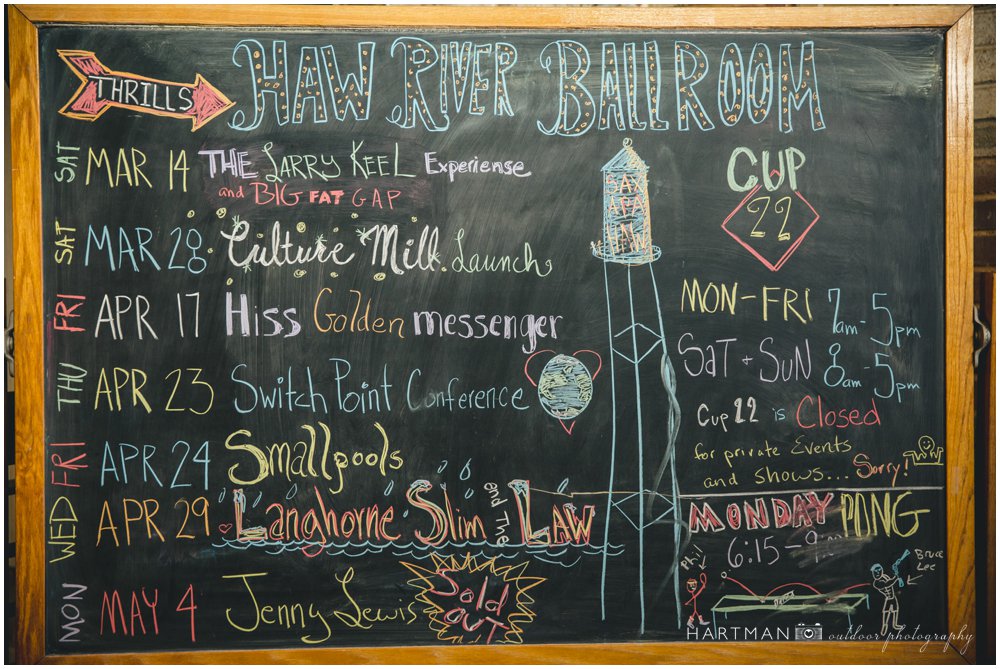 THRILLS
HAW RIVER BALLROOM
SAT MAR 14 THE LARRY KEEL Experiense
and BIG FAT GAP
SAT MAR 28 Culture Mill Launch
FRI APR 17 Hiss Golden messenger
THU APR 23 Switch Point Conference
FRI APR 24 Smallpools
WED APR 29 Langhorne Slim and THE LAW
MON MAY 4 Jenny Lewis Sold OUT
SAX
APA
HAW
CUP
22
MON-FRI 7am-5pm
SAT + SUN 8am-5pm
Cup 22 is Closed
for private Events
and shows... Sorry!
MONDAY PONG
6:15-9
Phil
Bruce
Lee
HARTMAN outdoor photography